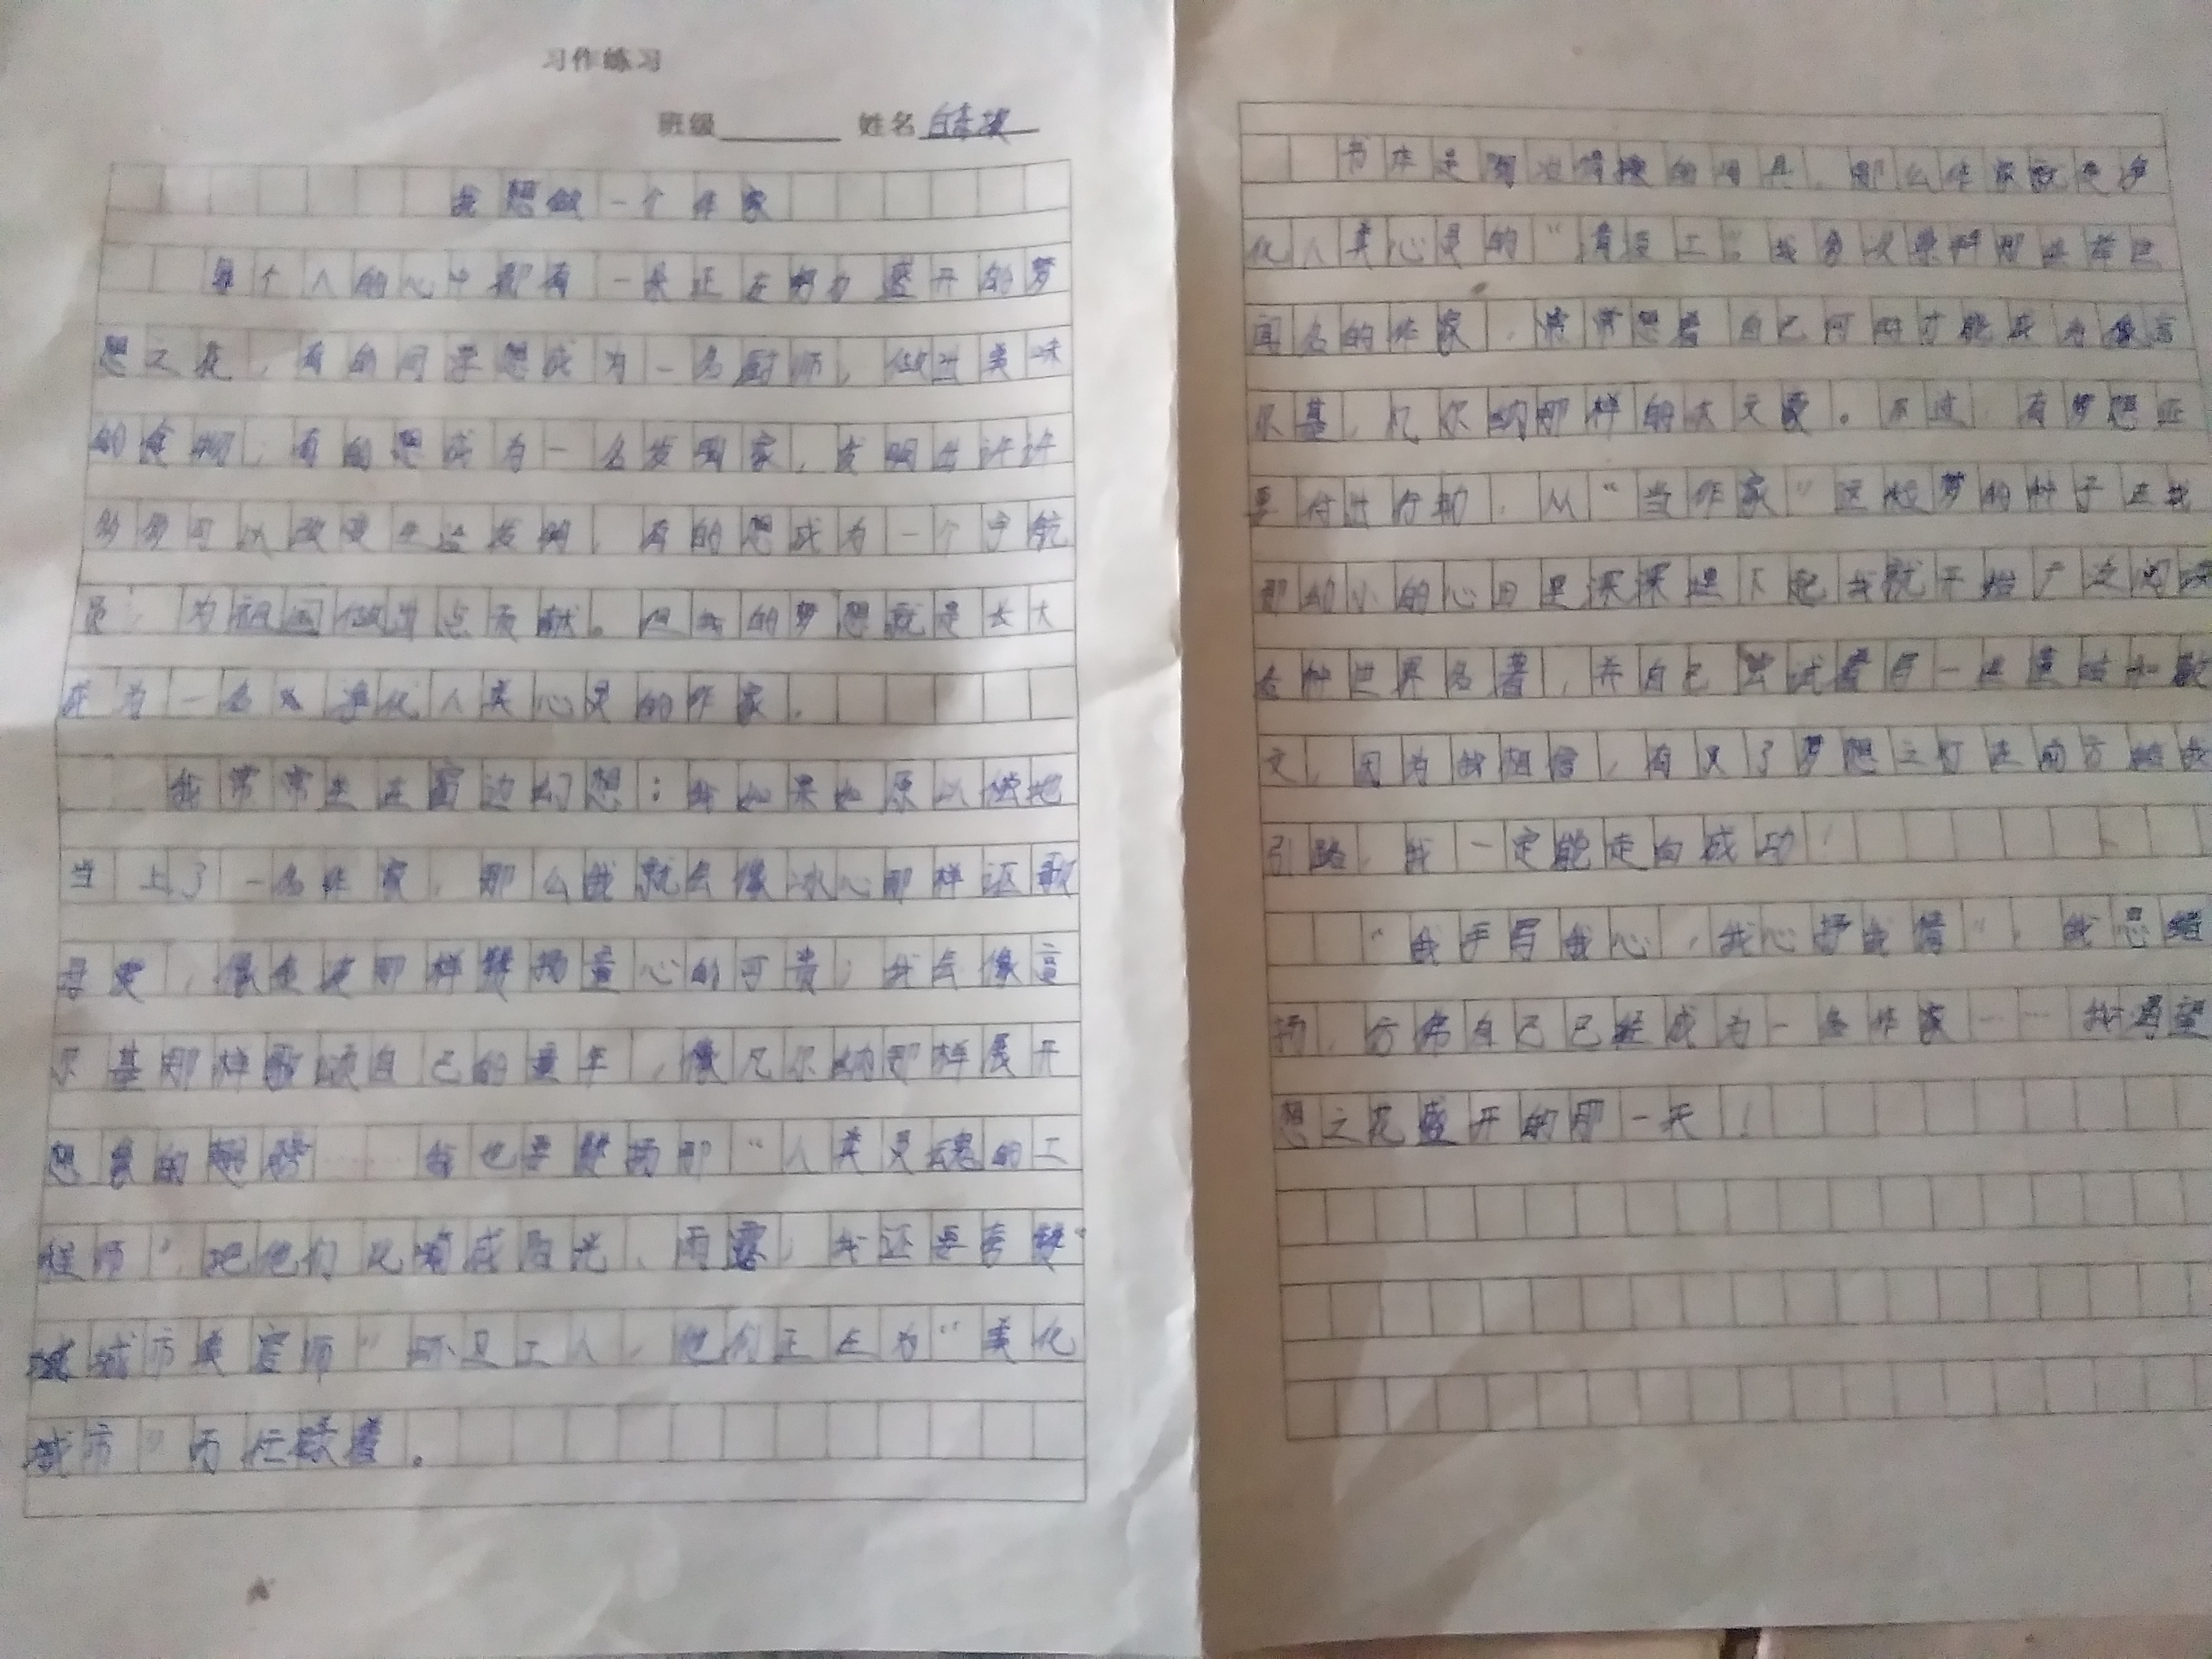 习作练习
班级 姓名
我想做一个作家
每个人的心中都有一朵正在努力盛开的梦
想之花，有的同学想成为一名厨师，做出美味
的食物；有的想成为一名发明家，发明出许许
多多可以改变生活发明，有的想成为一个宇航
员，为祖国做出点贡献。但我的梦想就是长大
成为一名净化人类心灵的作家。
我常常坐在窗边幻想：我如果如愿以偿地
当上了一名作家，那么我就会像冰心那样讴歌
母爱，像那样赞扬童心的可贵；我会像高
尔基那样歌颂自己的童年，像凡尔纳那样展开
想象的翅膀……我也要赞扬那“人类灵魂的工
程师”，把他们比喻成阳光、雨露；我还要夸赞“
城市美容师”环卫工人，他们正在为“美化
城市”而忙碌着。
书本是陶冶情操的用具，那么作家就是净
化人类心灵的“清洁工”。我多么崇拜那些举世
闻名的作家，常常想着自己何时才能成为像高
尔基，凡尔纳那样的大文豪。不过，有梦想还
要付出行动，从“当作家”这粒梦的种子在我
那幼小的心田里深深埋下起我就开始广泛阅读
各种世界名著，并自己尝试着写一些童话和散
文，因为我相信，有了梦想之灯在前方给我
引路，我一定能走向成功！
“我手写我心，我心抒我情”，我思绪
扬，仿佛自己已经成为一名作家……我希望
想之花盛开的那一天！